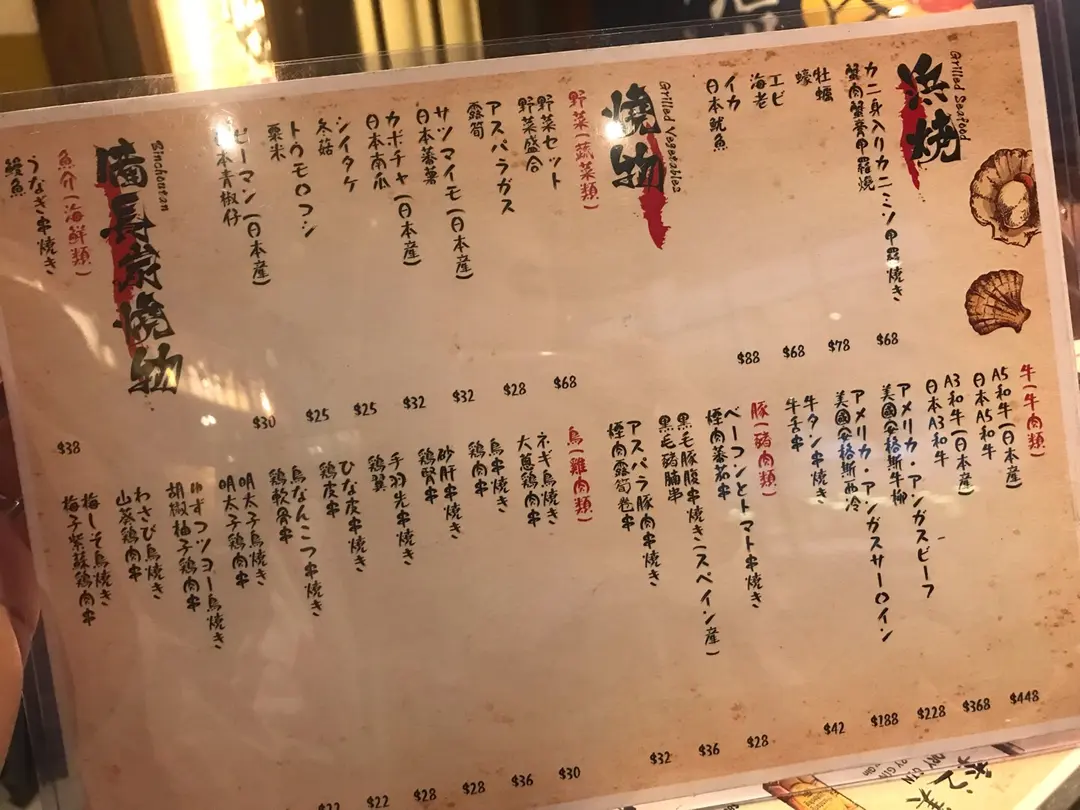 浜焼
Grilled Seafood
カニ身入りカニミソ甲羅焼き
蟹肉蟹膏甲羅燒
$68
牡蠣
蠔
$78
エビ
海老
$68
イカ
日本魷魚
$88
燒物
Grilled Vegetables
野菜(蔬菜類)
野菜セット
野菜盛合
$68
アスパラガス
露筍
$28
サツマイモ(日本産)
日本蕃薯
$32
カボチャ(日本産)
日本南瓜
$32
シイタケ
冬菇
$25
トウモロコシ
粟米
$25
ピーマン(日本産)
日本青椒仔
$30
備長炭燒物
魚介(海鮮類)
うなぎ串焼き
鰻魚
$38
牛(牛肉類)
A5和牛(日本産)
日本A5和牛
$448
A3和牛(日本産)
日本A3和牛
$368
アメリカ・アンガスビーフ
美國安格斯牛柳
$228
アメリカ・アンガスサーロイン
美國安格斯西冷
$188
牛タン串焼き
牛舌串
$42
豚(豬肉類)
ベーコンとトマト串焼き
煙肉蕃茄串
$28
黒毛豚腹串焼き(スペイン産)
黑毛豬腩串
$36
アスパラ豚肉串焼き
煙肉露筍卷串
$32
鳥(雞肉類)
ネギ鳥焼き
大蔥鶏肉串
$30
鳥串焼き
鶏肉串
$36
砂肝串焼き
鶏腎串
$28
手羽先串焼き
鶏翼
$28
ひな皮串焼き
鶏皮串
$22
鳥なんこつ串焼き
鶏軟骨串
明太子鳥焼き
明太子鶏肉串
ゆずコショー鳥焼き
胡椒柚子鶏肉串
わさび鳥焼き
山葵鶏肉串
梅しそ鳥焼き
梅子紫蘇鶏肉串